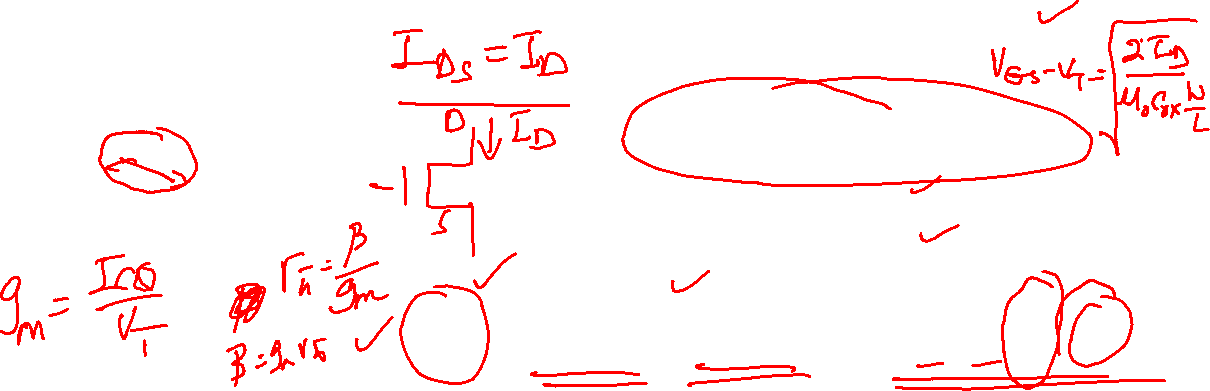 I_DS = I_D
V_GS - V_T = √(2 I_D / (μ_o C_ox W/L))
D ↓ I_D
S
g_m = I_CQ / V_T
r_π = β / g_m
β = g_m r_π